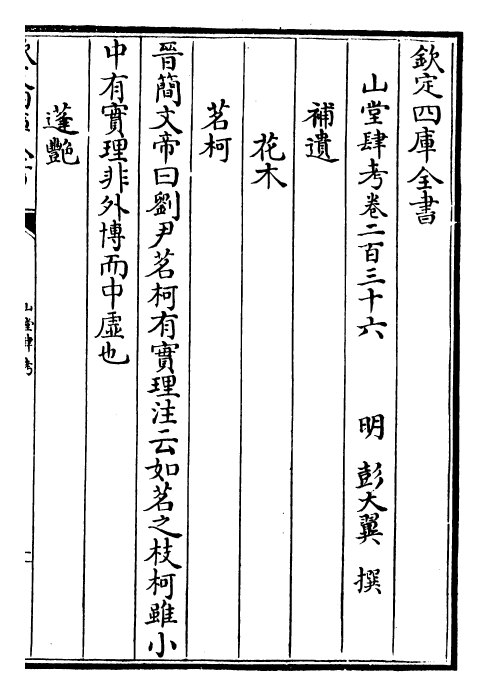 欽定四庫全書
山堂肆考卷二百三十六 明 彭大翼 撰
補遺
花木
茗柯
晉簡文帝曰劉尹茗柯有實理注云如茗之枝柯雖小
中有實理非外博而中虛也
蓬艷
山堂肆考